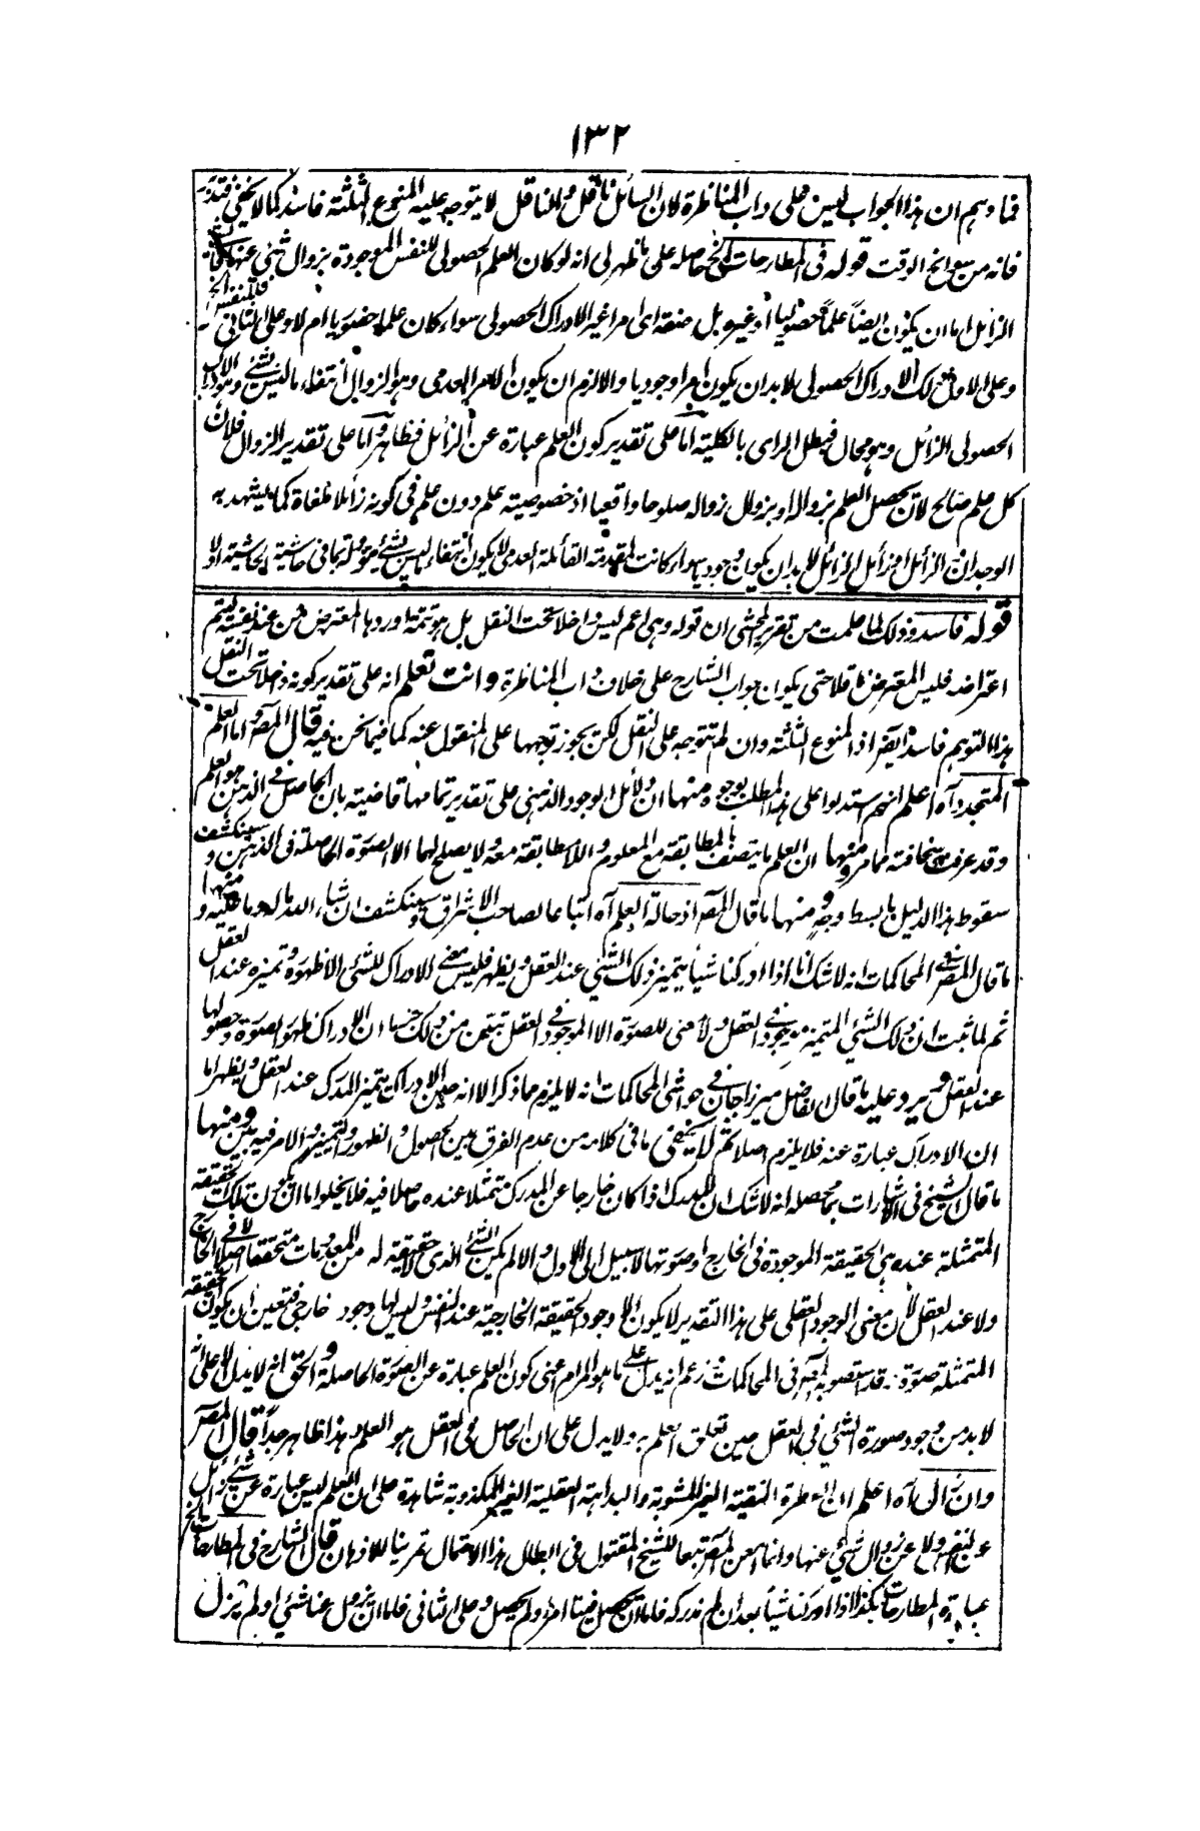 ١٣٢
فما وهم ان هذا الجواب ليس على داب المناظرة لان السائل ناقل والناقل لا يتوجه عليه المنوع الثلثة فاسد كما لا يخفى فتدبر
فانه من سوانح الوقت قوله فى المطارحات الخ حاصله على ما ظهر لى انه لو كان العلم الحصولى للنفس الموجودة بزوال شئ عنها
الزائل اما ان يكون ايضاً علماً حصولياً او غيره بل صفة اى امرا غير الادراك الحصولى سواء كان علما حضوريا ام لا وعلى الثانى
وعلى الاول ذلك الادراك الحصولى لا بد ان يكون امرا وجوديا والا لزم ان يكون الامر العدمى وهو الزوال انتفاء ما ليس بشئ وهو الادراك
الحصولى الزائل وهو محال فبطل الراى بالكلية اما على تقدير كون العلم عبارة عن الزائل فظاهر واما على تقدير الزوال فلان
كل علم صالح لان يحصل العلم بزواله او بزوال زواله صلوحا واقعيا اذ خصوصية علم دون علم فى كونه زائلا ملغاة كما يشهد به
الوجدان الزائل امر زائل الزائل لا بد ان يكون وجوديا سواء كانت المقدمة القائلة العدمى لا يكون انتفاء ليس بشئ فى حاشية الحاشية اولا
قوله فاسد وذلك لما علمت من تقرير المحشى ان قوله وهى اعم ليس داخلا تحت النقل بل هو تتمة اوردها المعترض من عند نفسه ليتم
اعتراضه فليس المعترض ناقلا حتى يكون جواب الشارح على خلاف داب المناظرة وانت تعلم انه على تقدير كونه داخلا تحت النقل
هذا التوهم فاسد ايضا اذ المنوع الثلثة وان لم تتوجه على النقل لكن يجوز توجهها على المنقول عنه كما فيما نحن فيه قال المصر واما العلم
المتجدد آه اعلم انهم استدلوا على هذا المطلب بوجوه منها ان دلائل الوجود الذهنى على تقدير تمامها قاضية بان الحاصل فى الذهن هو العلم
وقد عرفت سخافته مما مر ومنها ان العلم ما يتصف بالمطابقة مع المعلوم واللامطابقة معه ولا يصلح لها الا الصورة الحاصلة فى الذهن وسينكشف
سقوط هذا الدليل بابسط وجه ومنها ما قال المصر اذ حالة العلم آه اتباعا لصاحب الاشراق وسينكشف ان شاء الله ما له وما عليه ومنها
ما قال المصر فى المحاكمات انه لا شك انا اذا ادركنا شيأ يتميز ذلك الشئ عند العقل ويظهر فليس معنى الادراك للشئ الا ظهوره وتميزه عند العقل
ثم لما ثبت ان ذلك الشئ المتميز موجود فى العقل ولا معنى للصورة الا الموجود فى العقل تبين من ذلك جزما ان الادراك ظهور الصورة وحصولها
عند العقل ويرد عليه ما قال الفاضل ميرزاجان فى حواشى المحاكمات انه لا يلزم مما ذكر الا انه حين الادراك يتميز المدرك عند العقل ويظهر اما
ان الادراك عبارة عنه فلا يلزم اصلا ثم لا يخفى ما فى كلامه من عدم الفرق بين الحصول والظهور والتميز والامر فيه هين ومنها
ما قال الشيخ فى الاشارات بما محصله انه لا شك ان المدرك اذا كان خارجا عن المدرك متمثلا عنده حاصلا فيه فلا يخلو اما ان يكون تلك الحقيقة
المتمثلة عنده هى الحقيقة الموجودة فى الخارج او صورتها لا سبيل الى الاول والا لم يكن الشئ الذى لا حقيقة له من المعدومات متحققا اصلا لا فى الخارج
ولا عند العقل لان معنى الوجود العقلى على هذا التقدير لا يكون الا وجود الحقيقة الخارجية عند النفس وليس لها وجود خارجى فتعين ان يكون الحقيقة
المتمثلة صورة وقد استصوبه المصر فى المحاكمات زعم انه يدل على ما هو المرام اعنى كون العلم عبارة عن الصورة الحاصلة والحق انه لا يدل الا على انه
لا بد من وجود صورة الشئ فى العقل حين تعلق العلم به ولا يدل على ان الحاصل فى العقل هو العلم وهذا ظاهر جداً قال المصر
وان زال آه اعلم ان الفطرة النقية الغير المشوبة والبداهة العقلية الغير المكذوبة شاهدة على ان العلم ليس عبارة عن شئ زائل
عن النفس ولا عن زوال شئ عنها وانما امعن المصر تبعا للشيخ المقتول فى ابطال هذا الاحتمال تمرينا للاذهان قال الشارح فى المطارحات الخ
عبارة المطارحات هكذا اذا ادركنا شيأ بعد ان لم ندركه فاما ان يحصل فينا امر او لم يحصل وعلى الثانى فاما ان يزول عنا شئ او لم يزل